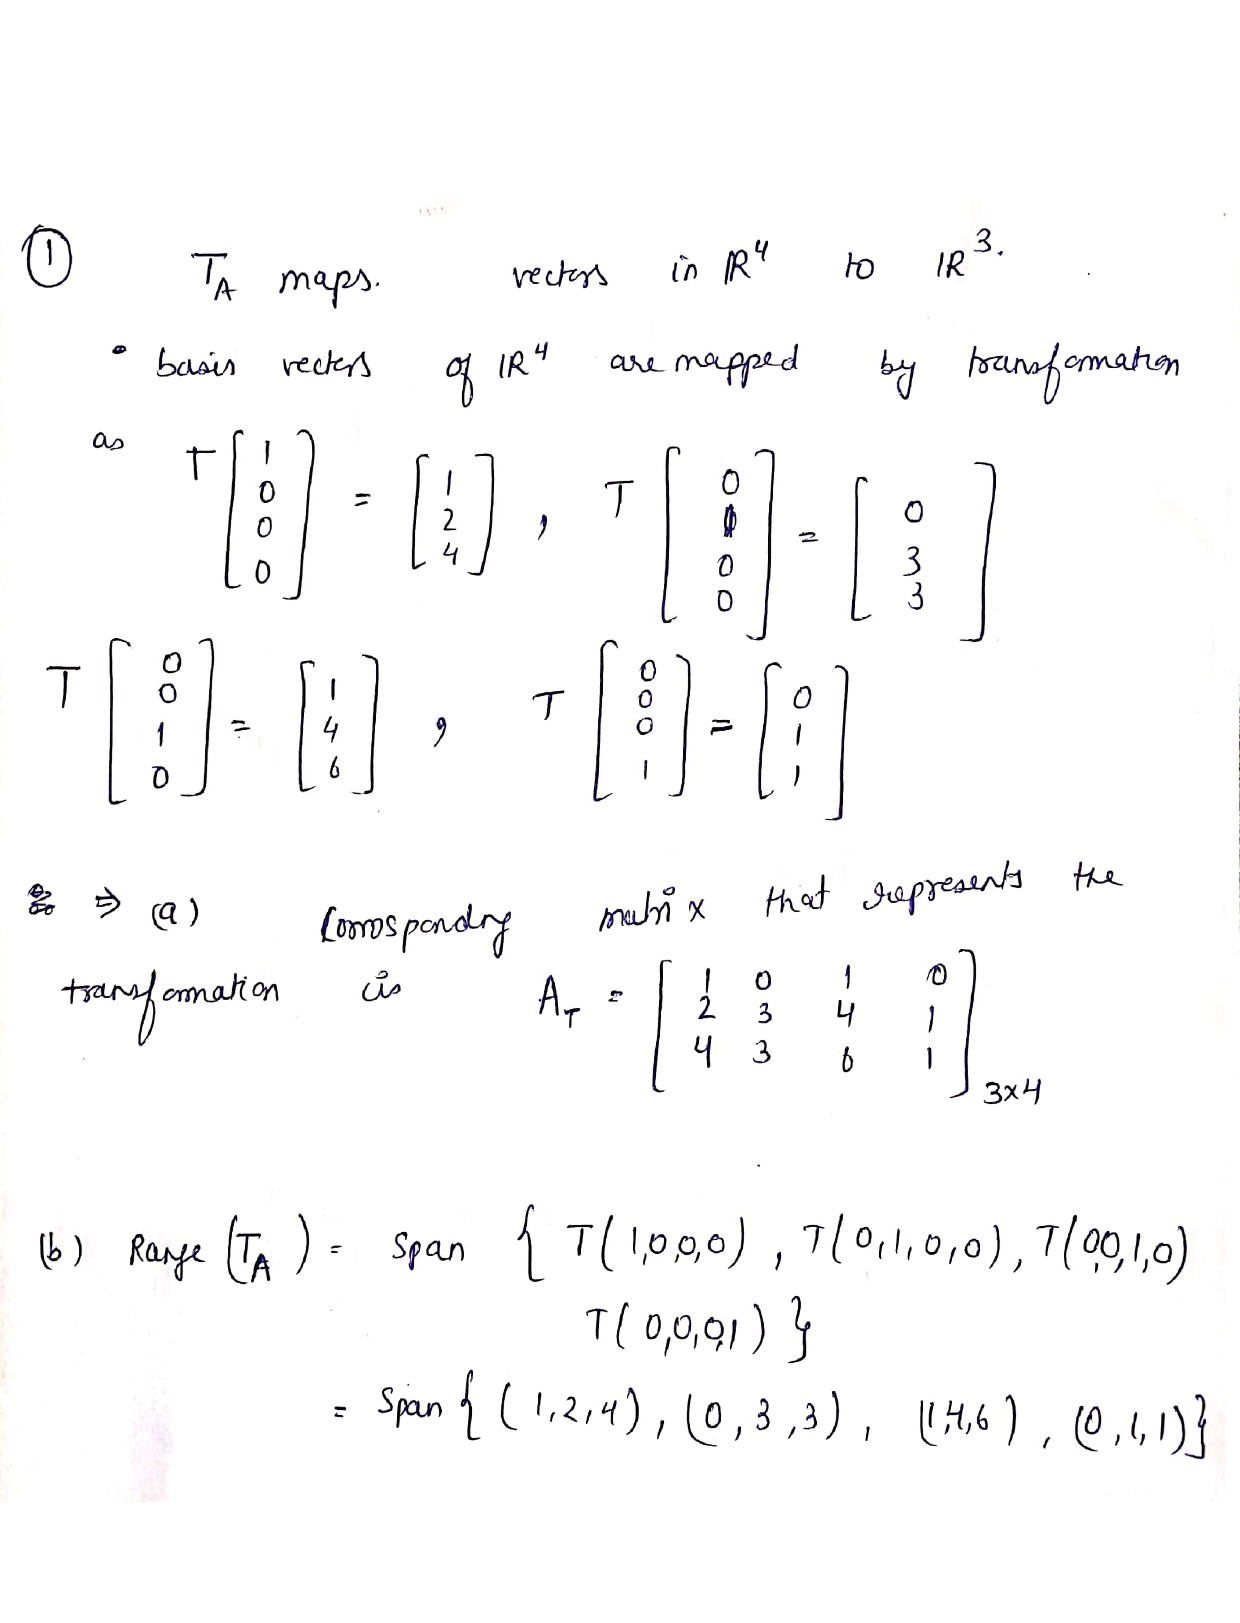 ① T_A maps. vectors in ℝ⁴ to ℝ³.
• basis vectors of ℝ⁴ are mapped by transformation
as T[1 0 0 0] = [1 2 4], T[0 1 0 0] = [0 3 3]
T[0 0 1 0] = [1 4 6], T[0 0 0 1] = [0 1 1]
⇒ (a) Corrospondng matrix that represents the
transformation is A_T = [1 0 1 0; 2 3 4 1; 4 3 6 1] 3x4
(b) Range (T_A) = Span { T(1,0,0,0), T(0,1,0,0), T(0,0,1,0)
T(0,0,0,1) }
= Span{ (1,2,4), (0,3,3), (1,4,6), (0,1,1)}